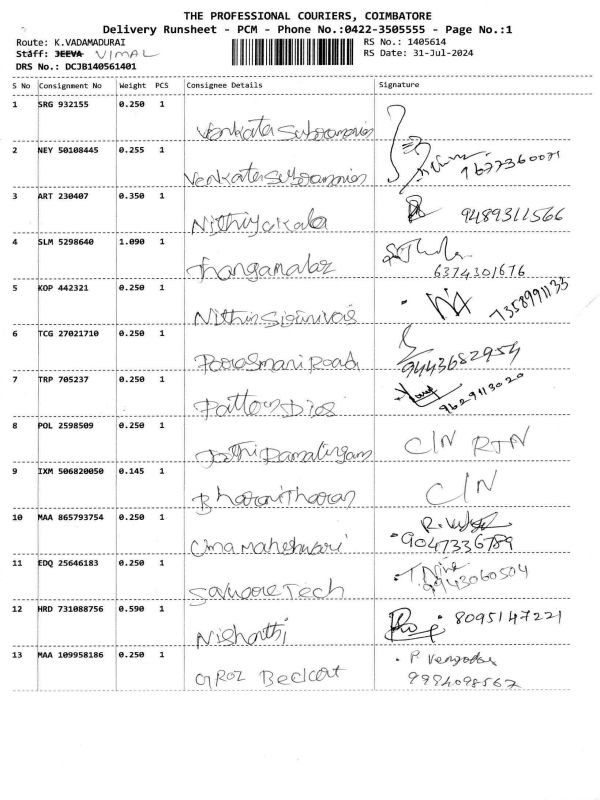 THE PROFESSIONAL COURIERS, COIMBATORE
Delivery Runsheet - PCM - Phone No.:0422-3505555 - Page No.:1
Route: K.VADAMADURAI RS No.: 1405614
Staff: JEEVA VIMAL RS Date: 31-Jul-2024
DRS No.: DCJB140561401
S No Consignment No Weight PCS Consignee Details Signature
1 SRG 932155 0.250 1
Venkata Subramanian
2 NEY 50108445 0.255 1
Venkata Subramanian
3 ART 230407 0.350 1
Nithiyakala 9489311566
4 SLM 5298640 1.090 1
Thangamalar 6374301676
5 KOP 442321 0.250 1
7358991133
6 TCG 27021710 0.250 1
Road 9443682954
7 TRP 705237 0.250 1
9629113020
8 POL 2598509 0.250 1
C/N RTN
9 IXM 506820050 0.145 1
C/N
10 MAA 865793754 0.250 1
Uma maheshwari 9047336789
11 EDQ 25646183 0.250 1
Tech 9943060504
12 HRD 731088756 0.590 1
8095147221
13 MAA 109958186 0.250 1
9994098567